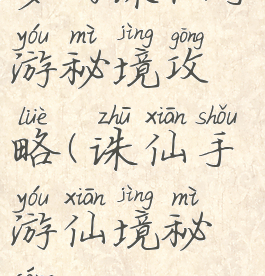 yóu mì jìng gōng
游秘境攻
lüè zhū xiān shǒu
略(诛仙手
yóu xiān jìng mì
游仙境秘